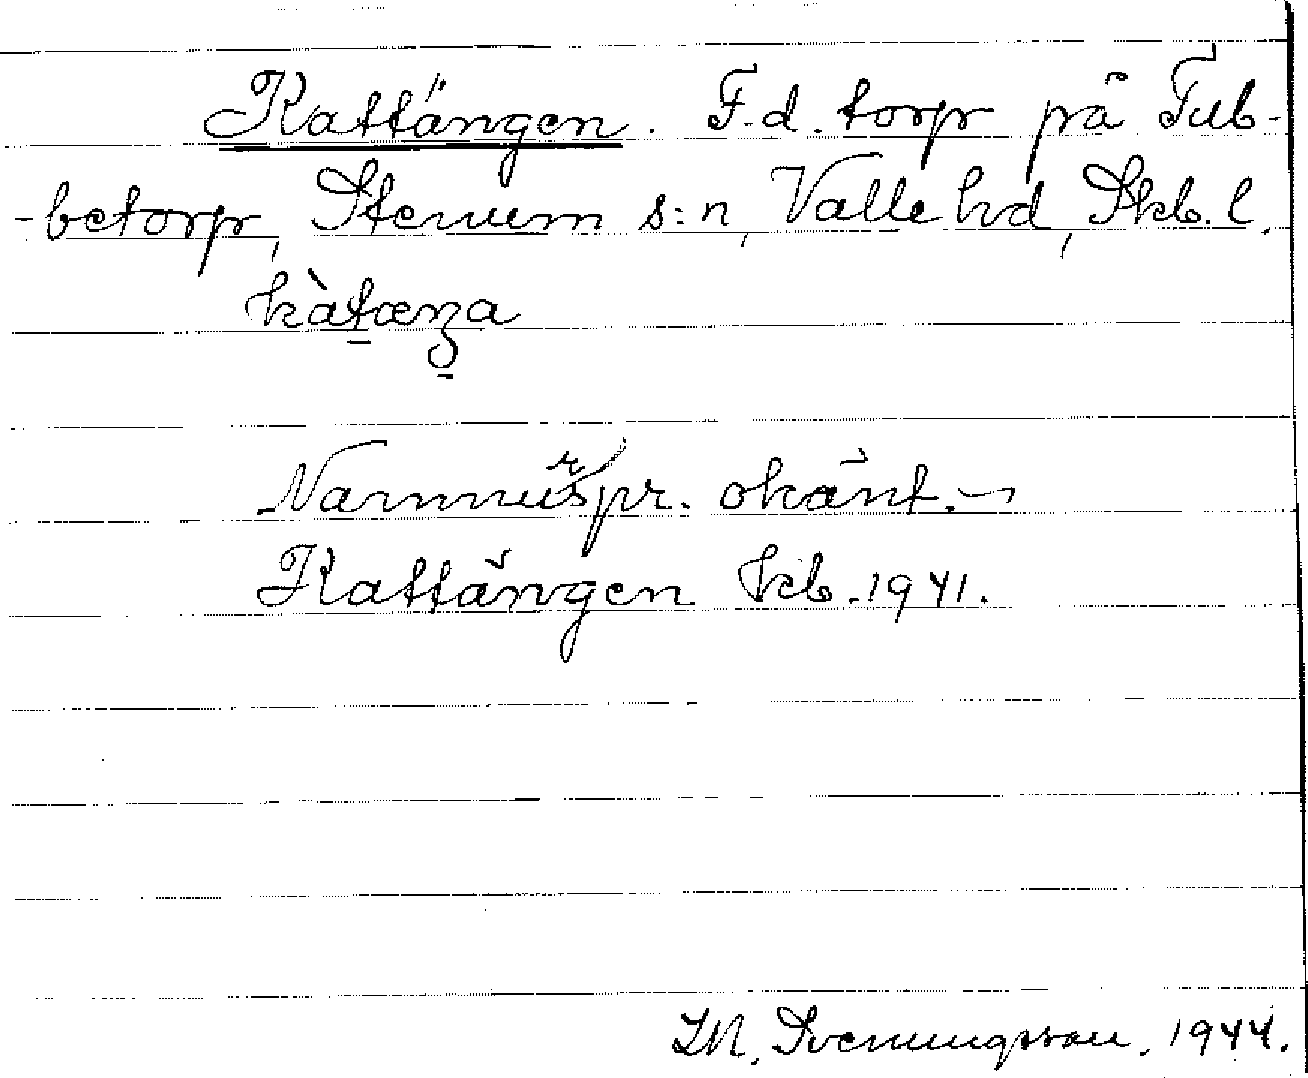 Kattängen. F.d. torp på Tub-
-betorp, Stenum s:n, Valle hd, Skb. l.
kàtæŋa
Namnurspr. okänt.
Kattängen kb. 1941.
Svenungsson. 1944.